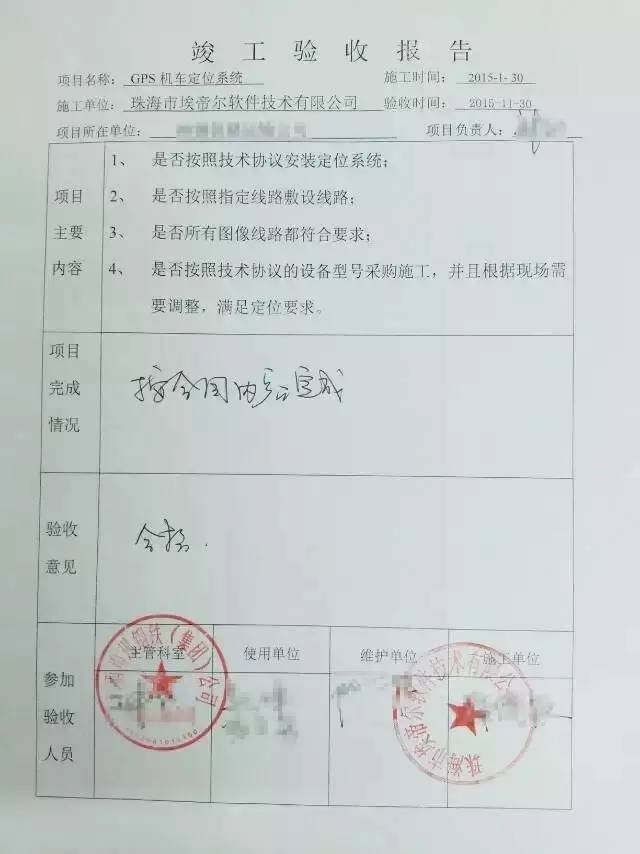 竣工验收报告
项目名称： GPS 机车定位系统 施工时间： 2015-1-30
施工单位： 珠海市埃帝尔软件技术有限公司 验收时间： 2015-11-30
项目所在单位： 项目负责人：
项目主要内容
1、 是否按照技术协议安装定位系统；
2、 是否按照指定线路敷设线路；
3、 是否所有图像线路都符合要求；
4、 是否按照技术协议的设备型号采购施工，并且根据现场需
要调整，满足定位要求。
项目完成情况
按合同内容完成
验收意见
合格.
参加验收人员
主管科室 使用单位 维护单位 施工单位
钢铁（集团）公司
珠海市埃帝尔软件技术有限公司